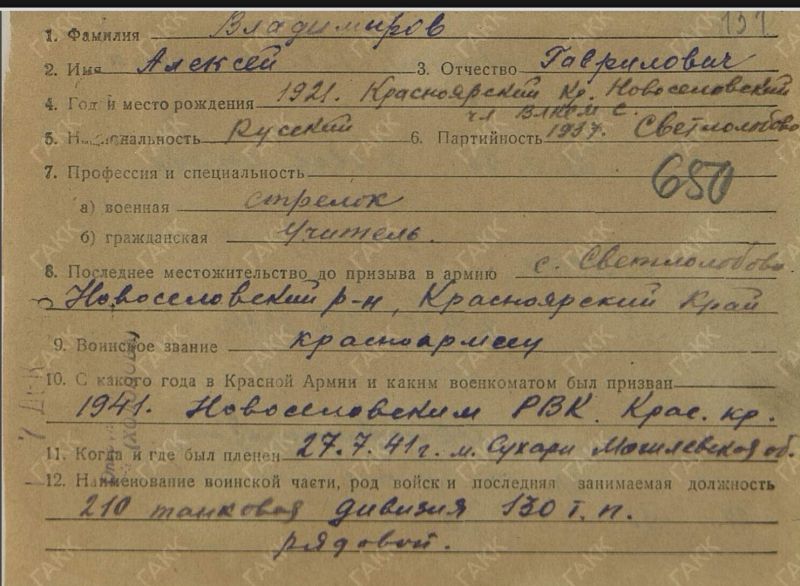 1. Фамилия Владимиров 151
2. Имя Алексей 3. Отчество Гаврилович
4. Год и место рождения 1921. Красноярский Кр. Новоселовский
чл ВЛКСМ с.
5. Национальность Русский 6. Партийность 1937. Светлолобово
7. Профессия и специальность 680
а) военная стрелок
б) гражданская Учитель.
8. Последнее местожительство до призыва в армию с. Светлолобово.
Новоселовский р-н, Красноярский Край
9. Воинское звание красноармеец
10. С какого года в Красной Армии и каким военкоматом был призван
1941. Новоселовским РВК. Крас. кр.
11. Когда и где был пленен 27.7.41г. м. Сухари Могилевской об.
12. Наименование воинской части, род войск и последняя занимаемая должность
210 танковая дивизия 130 т. п.
рядовой.
ГАКК